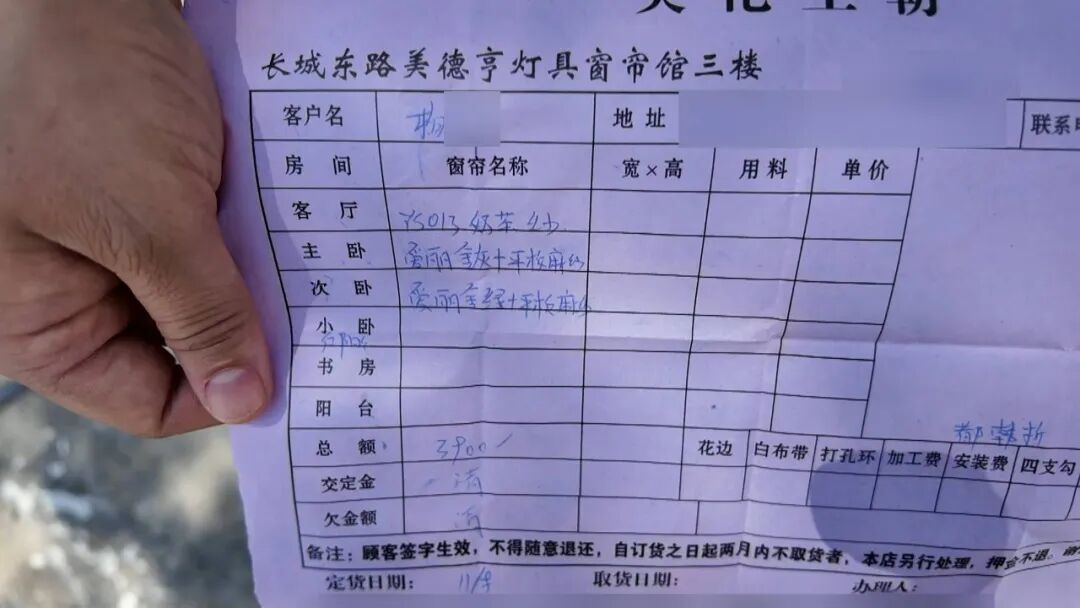 长城东路美德亨灯具窗帘馆三楼
客户名 杨 地址 联系电
房间 窗帘名称 宽×高 用料 单价
客厅 75013 奶茶 纱
主卧 爱丽金灰+平板麻纱
次卧 爱丽金绿+平板麻纱
小卧
书房
阳台
总额 3900 花边 白布带 打孔环 加工费 安装费 四支勾
交定金 清
欠金额 清
备注：顾客签字生效，不得随意退还，自订货之日起两月内不取货者，本店另行处理，押金不退。
定货日期： 取货日期： 办理人：